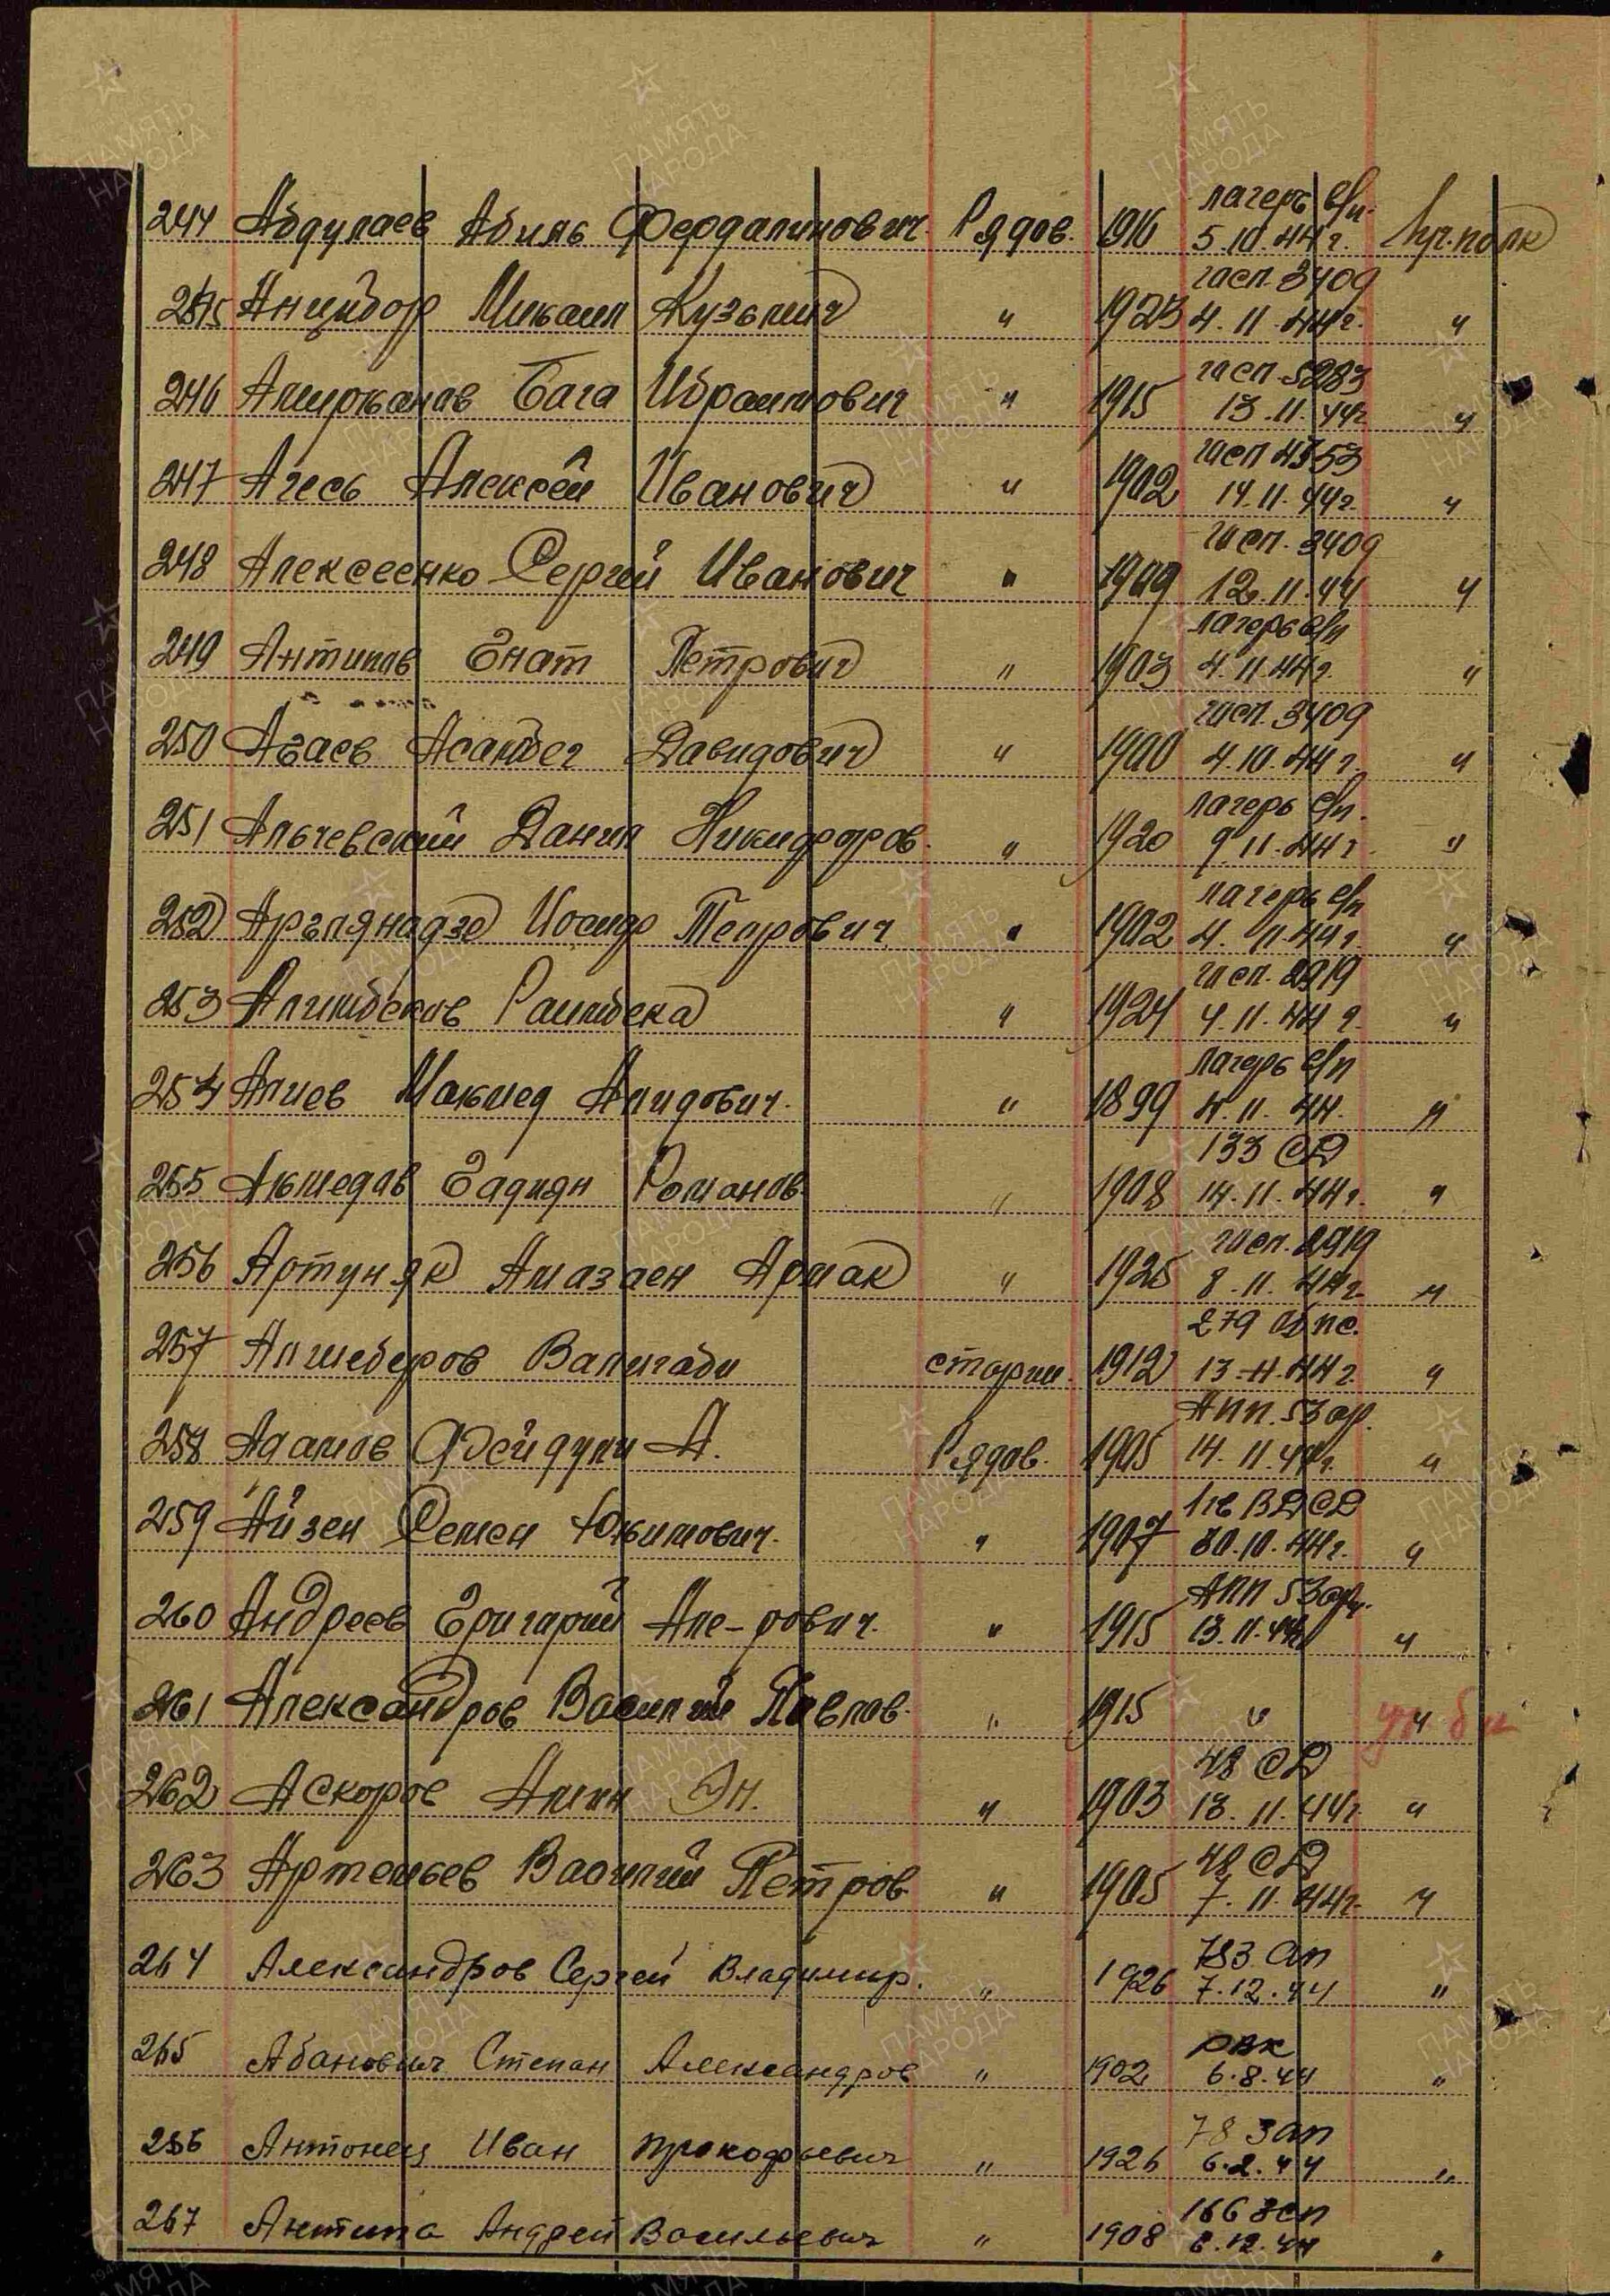 244 Абдулаев Абиль Фердалинович. Рядов. 1916 лагерь в/п. 5.10.44 г. пр. полк
245 Анцибор Михаил Кузьмич " 1923 госп. 3409 4.11.44 г. "
246 Амирханов Бага Ибраимович " 1915 госп. 5283 13.11.44 г "
247 Агесь Алексей Иванович " 1902 госп 4353 14.11.44 г. "
248 Алексеенко Сергей Иванович " 1909 госп. 3409 12.11.44 "
249 Антипов Енат Петрович " 1903 лагерь в/п 4.11.44 г. "
250 Агаев Асанбег Давидович " 1900 госп. 3409 4.10.44 г. "
251 Альчевский Данил Никифоров. " 1920 лагерь в/п. 9.11.44 г. "
252 Иосиф Петрович " 1902 лагерь в/п 4.11.44 г. "
253 Алимбеков Раимбека " 1924 госп. 2919 4.11.44 г. "
254 Алиев Махмед Алидович. " 1899 лагерь в/п 4.11.44. "
255 Ахмедов Романов. " 1908 133 СД 14.11.44 г. "
256 Артуняк Амазаен Армак " 1925 госп. 2919 8.11.44 г. "
257 Валигаби старш. 1912 279 13.11.44 г. "
258 Адамов Фейдули А. Рядов. 1905 АПП. 53 ар. 14.11.44 г. "
259 Айзен Семен Юхимович. " 1907 ВДСД 30.10.44 г. "
260 Андреев Григорий Але-рович. " 1915 АПП 53 арм. 13.11.44 "
261 Александров Василий Павлов. " 1915 " "
262 Аскоров Амин Эн. " 1903 48 СД 13.11.44 г. "
263 Артемьев Василий Петров. " 1905 48 СД 7.11.44 г. "
264 Александров Сергей Владимир. " 1926 783 ап 7.12.44 "
265 Абанович Степан Александров " 1902 РВК 6.8.44 "
266 Антонец Иван Прокофьевич " 1926 783 ап 6.2.44 "
267 Антипа Андрей Васильевич " 1908 166 зсп 6.12.44 "
ПАМЯТЬ
НАРОДА